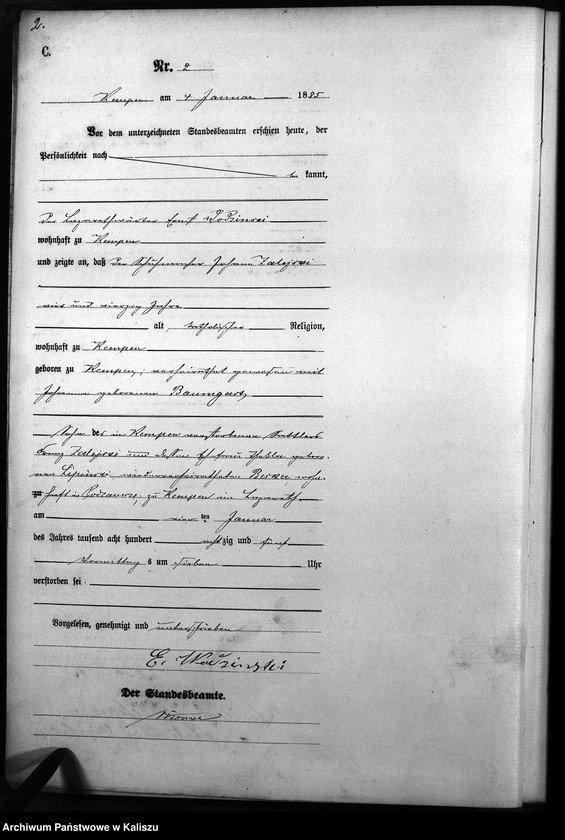 2.
C.
Nr. 2
Kempen am 4 Januar 1885
Vor dem unterzeichneten Standesbeamten erschien heute, der
Persönlichkeit nach
be kannt,
Der Lazarethwärter Emil
wohnhaft zu Kempen
und zeigte an, daß Der Schuhmacher Johann Zalejski
vier und vierzig Jahre
alt, katholischer Religion,
wohnhaft zu Kempen
geboren zu Kempen, verheirathet gewesen mit
Johanna geborenen Baumgart,
Sohn des in Kempen verstorbenen Sattlers
Franz Zalejski und dessen Ehefrau Thekla gebore-
nen Lipinski wiederverheiratheten wohn-
haft in zu Kempen im Lazareth
am vier ten Januar
des Jahres tausend acht hundert achtzig und fünf
Vormittag s um sieben Uhr
verstorben sei
Vorgelesen, genehmigt und unterschrieben
E.
Der Standesbeamte.
Archiwum Państwowe w Kaliszu